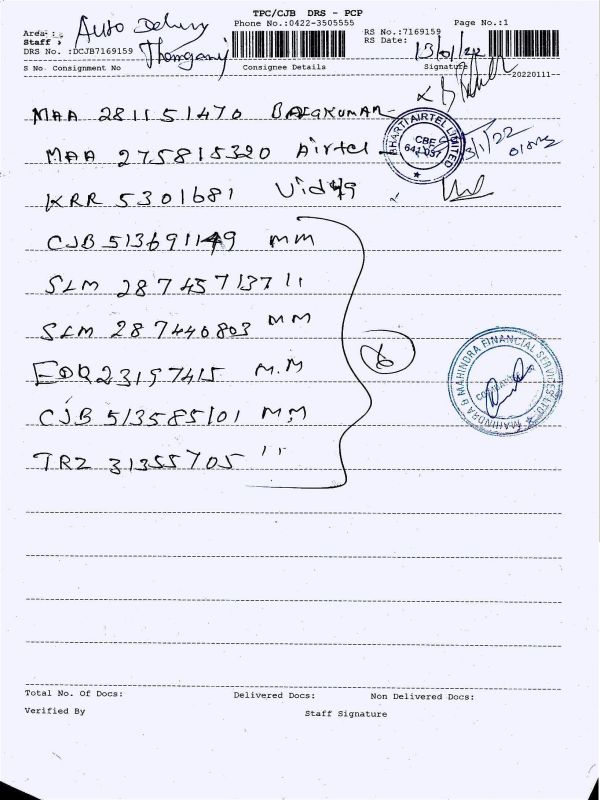 TPC/CJB DRS - PCP
Phone No.:0422-3505555 Page No.:1
Area: Auto Delivery
Staff : Thangaraj
RS No.:7169159
RS Date: 13/01/22
DRS No. :DCJB7169159
S No Consignment No Consignee Details Signature
20220111--
MAA 281151470 BALAKUMAR
MAA 275815320 Airtel
BHARTI AIRTEL LIMITED CBE 641 037
13/1/22
KRR 5301681
CJB 513691149 MM
SLM 287457137 11
SLM 287440803 MM
EDR 23197415 M.M
CJB 513585101 MM
TRZ 31355705 11
6
MAHINDRA & MAHINDRA FINANCIAL SERVICES LTD.
Total No. Of Docs: Delivered Docs: Non Delivered Docs:
Verified By Staff Signature